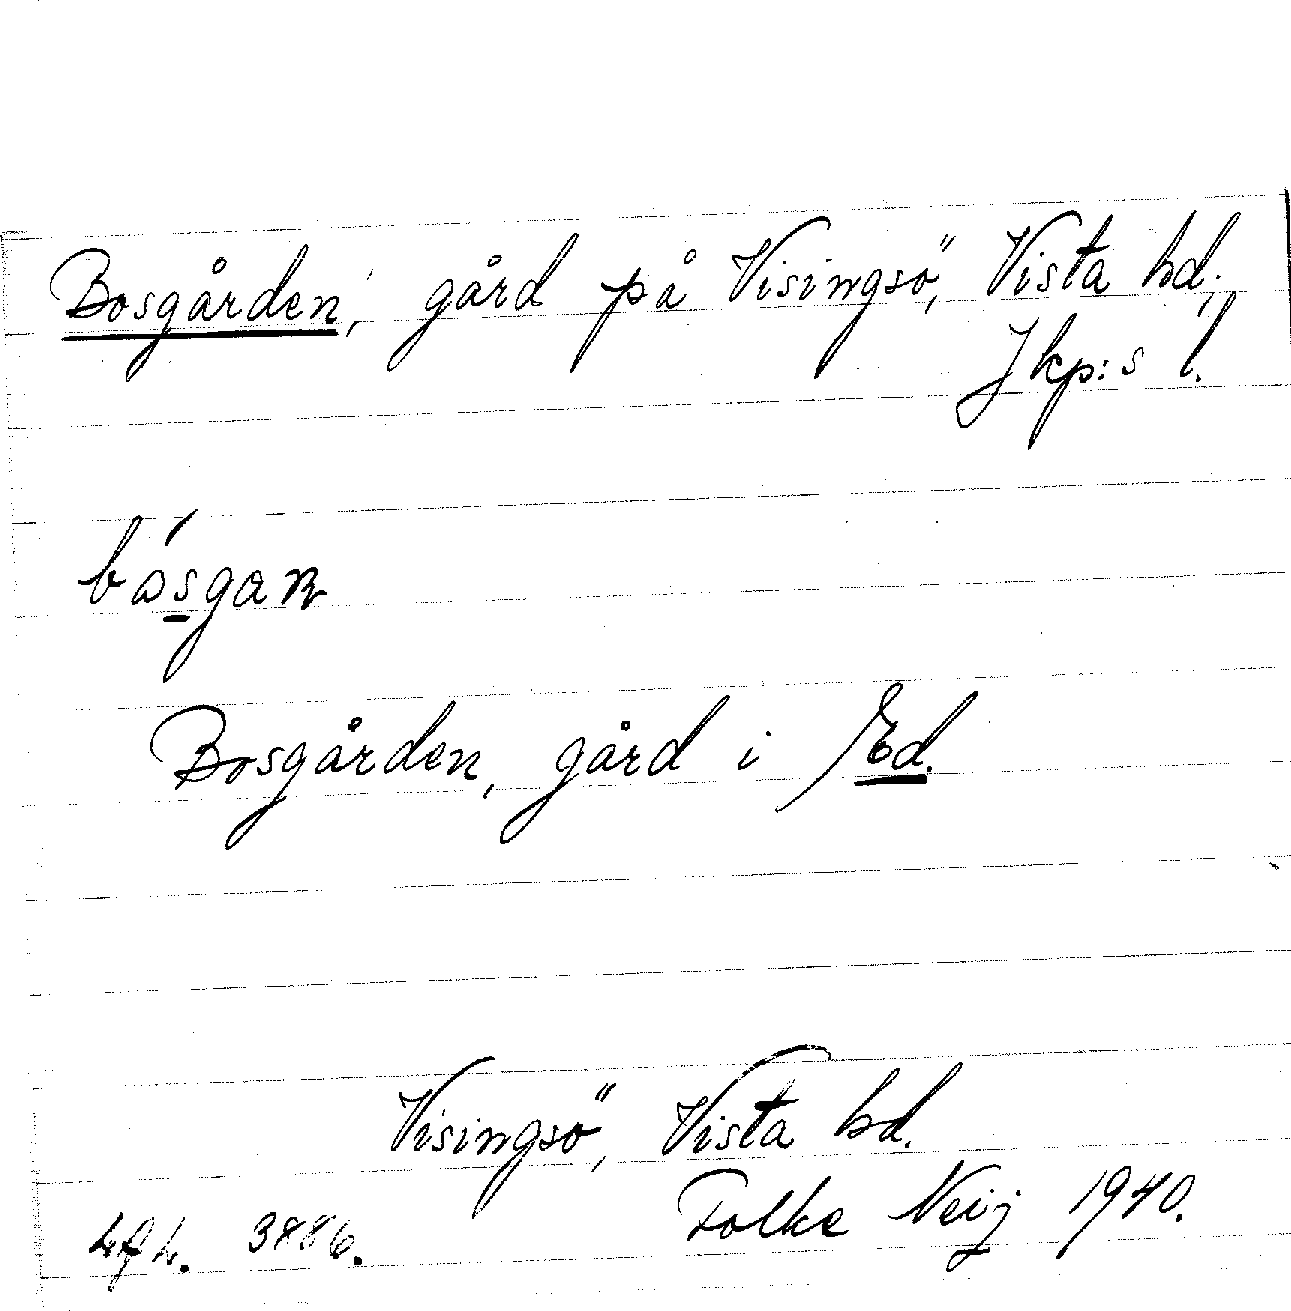 Bosgården, gård på Visingsö, Vista hd,
Jkp:s l.
bósgan
Bosgården, gård i Ed.
Visingsö, Vista hd.
Folke Neij 1940.
3886.